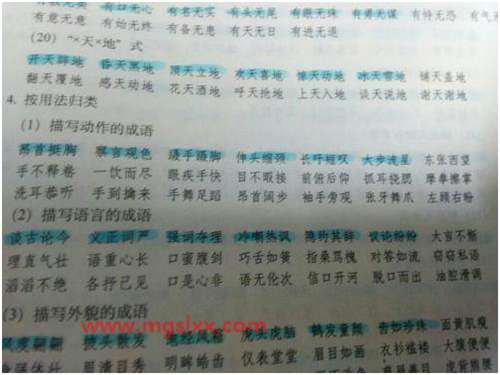 有口无心 有名无实 有头无尾 有眼无珠 有勇无谋 有恃无恐
有意无意 有始无终 有备无患 有天无日 有进无退
(20) “×天×地” 式
开天辟地 昏天黑地 顶天立地 欢天喜地 惊天动地 冰天雪地 铺天盖地
翻天覆地 感天动地 花天酒地 呼天抢地 上天入地 谈天说地 谢天谢地
4. 按用法归类
(1) 描写动作的成语
昂首挺胸 察言观色 蹑手蹑脚 伸头缩颈 长吁短叹 大步流星 东张西望
手不释卷 一饮而尽 眼疾手快 目不暇接 前俯后仰 抓耳挠腮 摩拳擦掌
洗耳恭听 手到擒来 手舞足蹈 昂首阔步 袖手旁观 张牙舞爪 左顾右盼
(2) 描写语言的成语
谈古论今 义正词严 强词夺理 冷嘲热讽 隐约其辞 议论纷纷 大言不惭
理直气壮 语重心长 口蜜腹剑 巧舌如簧 指桑骂槐 对答如流 窃窃私语
滔滔不绝 各抒己见 口是心非 语无伦次 信口开河 脱口而出 油腔滑调
(3) 描写外貌的成语
www.mgslxx.com
披头散发 虎头虎脑 鹤发童颜 面黄肌瘦
眉清目秀 明眸皓齿 仪表堂堂 眉目如画 衣衫褴褛 大腹便便